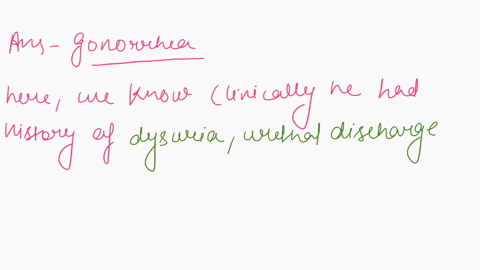 Ans - gonorrhea
here, we know clinically he had
history of dysuria, urethral discharge